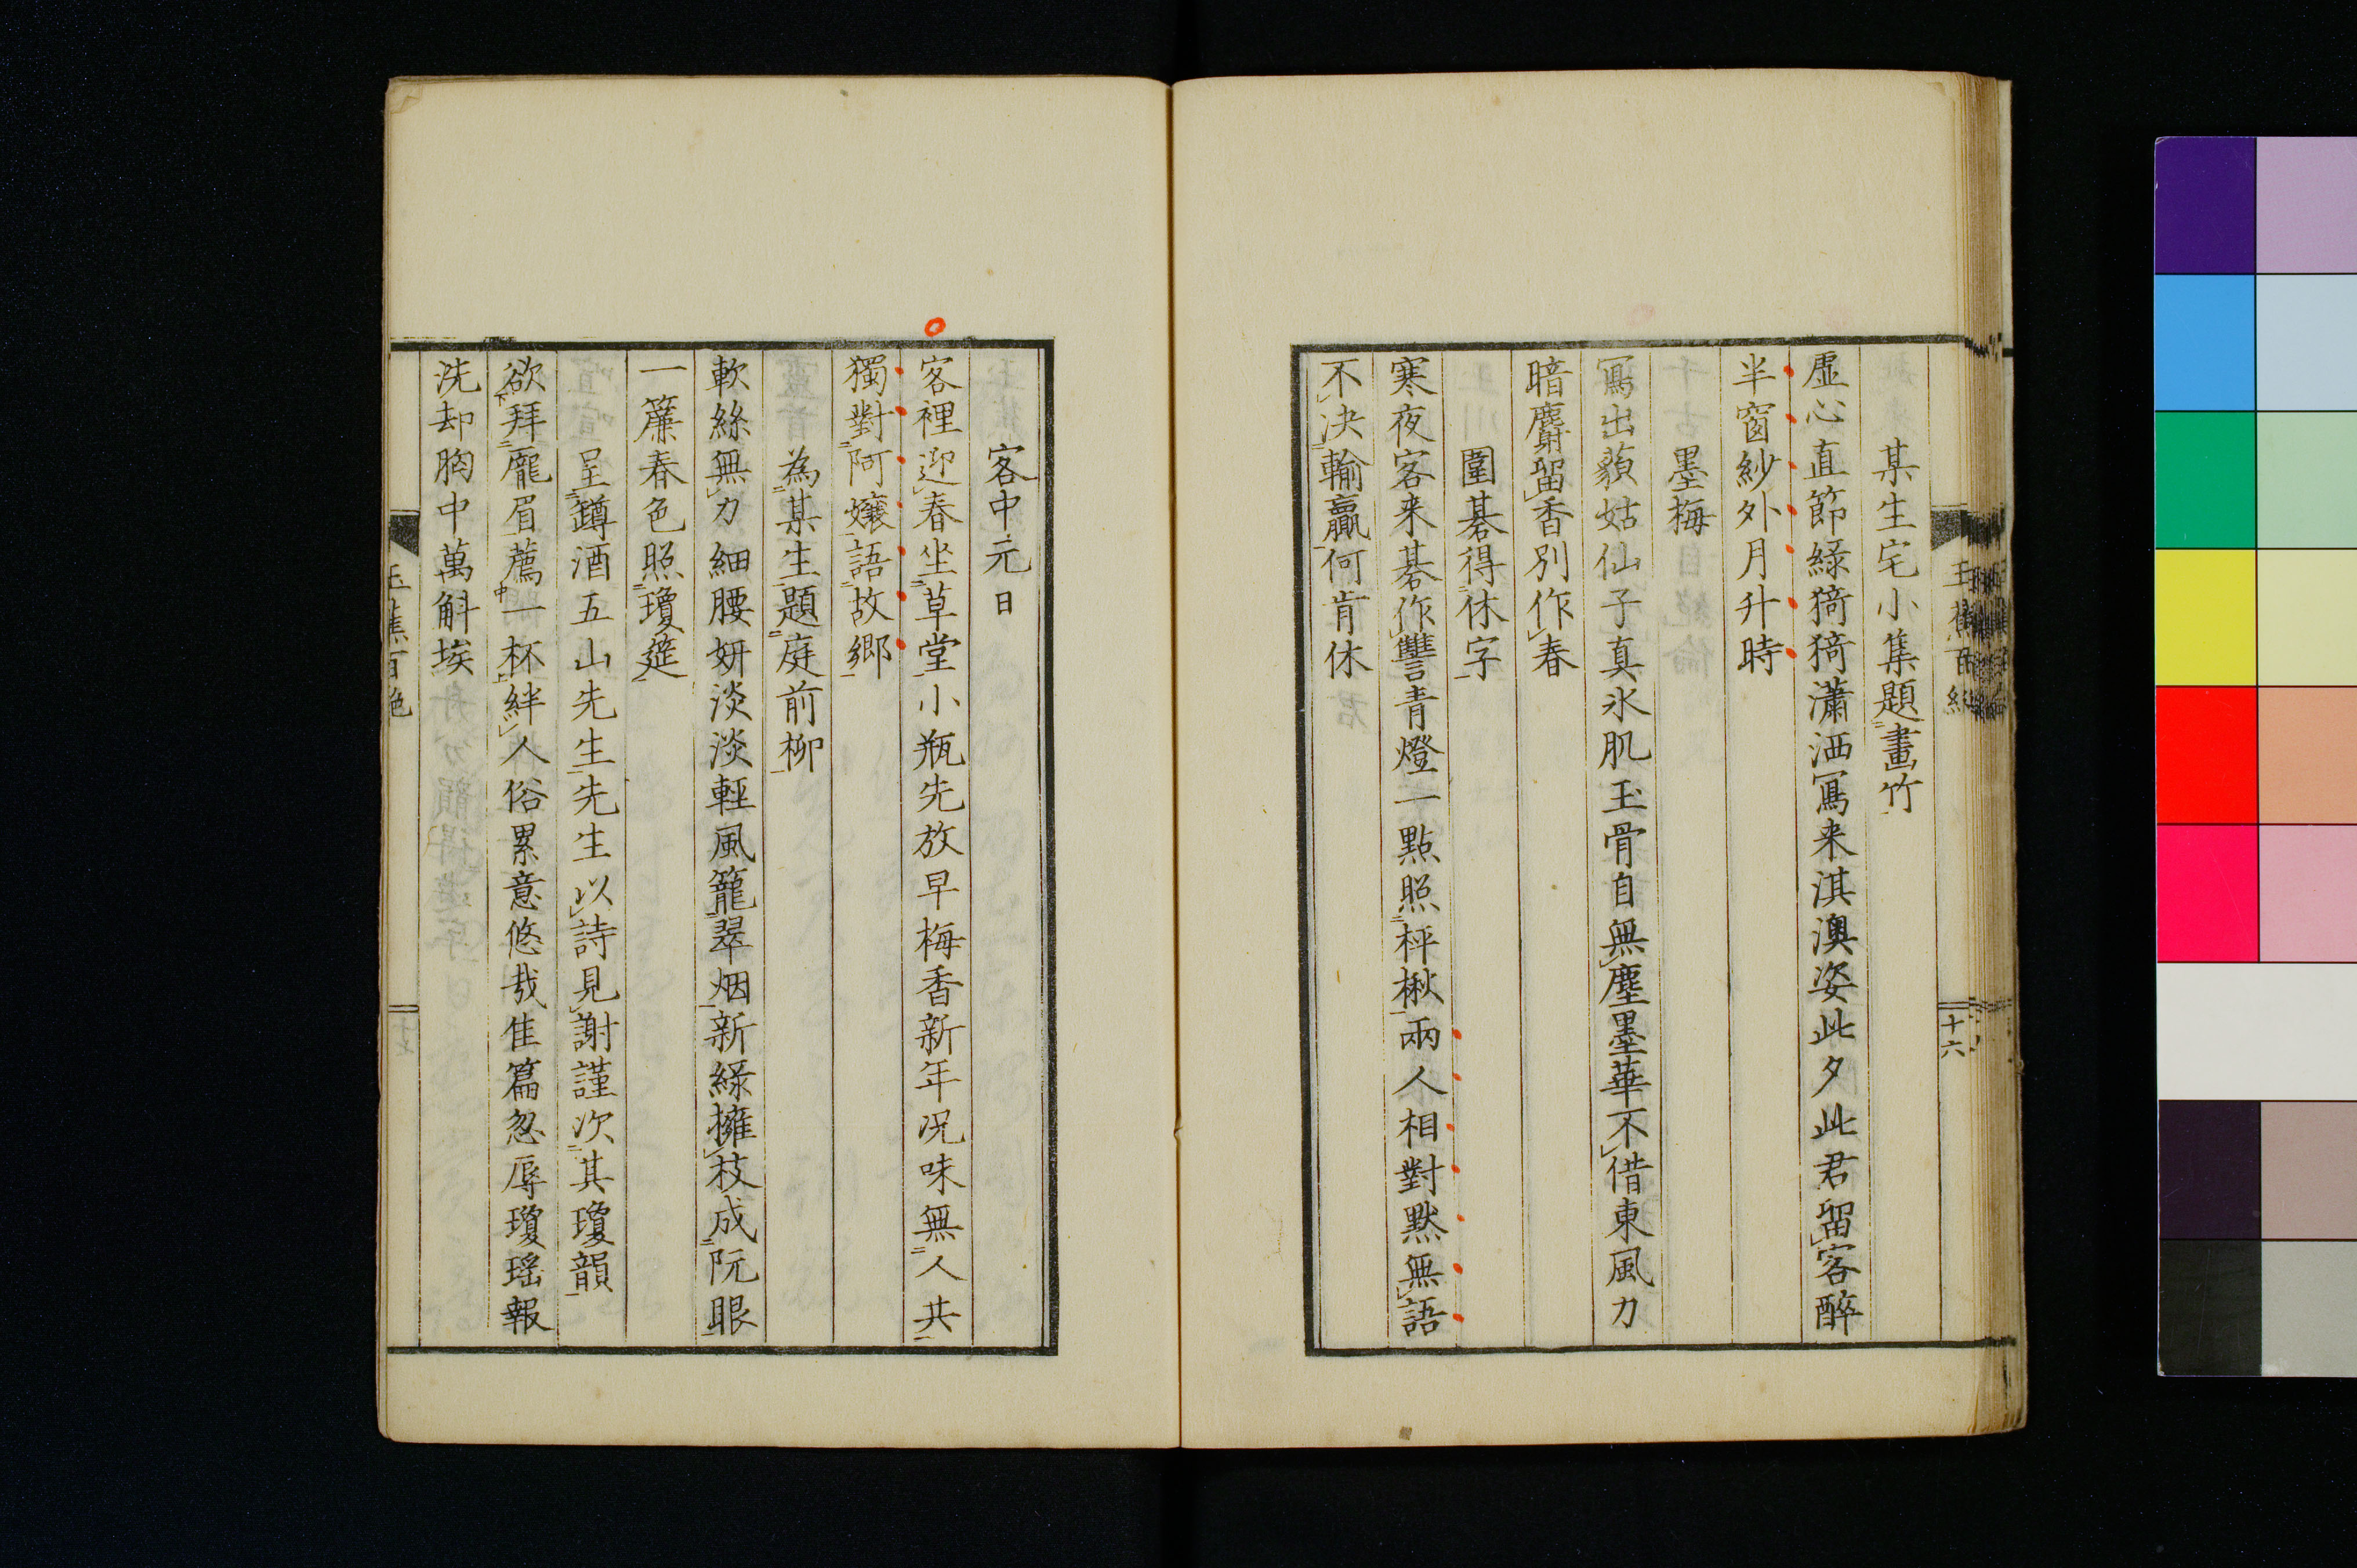 某生宅小集題畫竹
虛心直節綠猗猗瀟洒寫来淇澳姿此夕此君留客醉
半窗紗外月升時
墨梅
寫出藐姑仙子真氷肌玉骨自無塵墨華不借東風力
暗麝留香別作春
圍碁得休字
寒夜客来碁作讐青燈一點照枰楸兩人相對默無語
不决輸贏何肯休
十六
客中元日
客裡迎春坐草堂小瓶先放早梅香新年况味無人共
獨對阿孃語故郷
為某生題庭前柳
軟絲無力細腰妍淡淡輕風籠翠烟新綠擁枝成阮眼
一簾春色照瓊筵
呈罇酒五山先生先生以詩見謝謹次其瓊韻
欲拜龐眉薦一杯絆人俗累意悠哉佳篇忽辱瓊瑶報
洗却胸中萬斛埃
玉蕉百絶